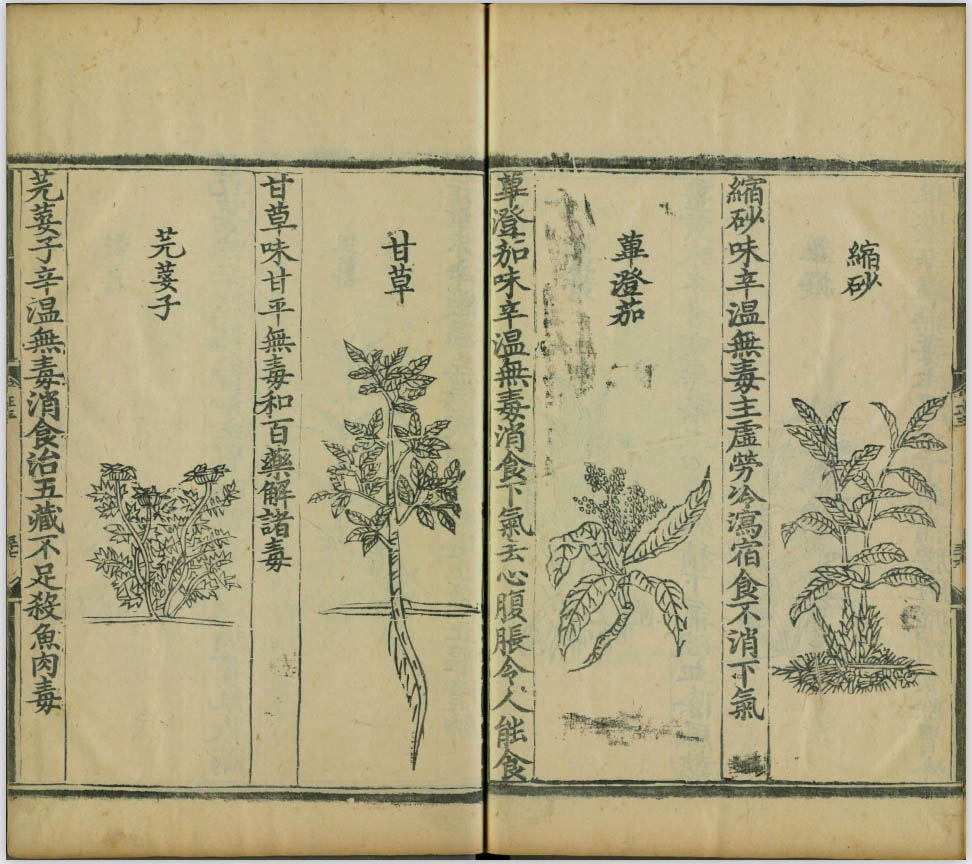 縮砂
縮砂味辛温無毒主虛勞冷瀉宿食不消下氣
蓽澄茄
蓽澄茄味辛温無毒消食下氣去心腹脹令人能食
甘草
甘草味甘平無毒和百藥解諸毒
芫荽子
芫荽子辛温無毒消食治五藏不足殺魚肉毒